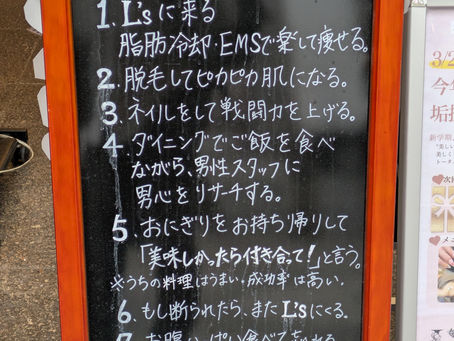 1. L'sに来る
脂肪冷却・EMSで楽して痩せる。
2. 脱毛してピカピカ肌になる。
3. ネイルをして戦闘力を上げる。
4. ダイニングでご飯を食べ
ながら、男性スタッフに
男心をリサーチする。
5. おにぎりをお持ち帰りして
「美味しかったら付き合って!」と言う。
※うちの料理はうまい、成功率は高い。
6. もし断られたら、またL'sにくる。
7. お腹いっぱい食べて忘れる
3/2